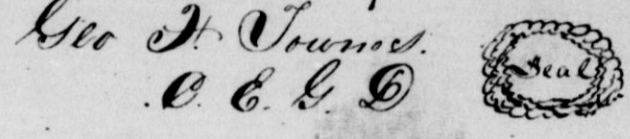 Geo H. Townes.
C. E. G. D
Seal